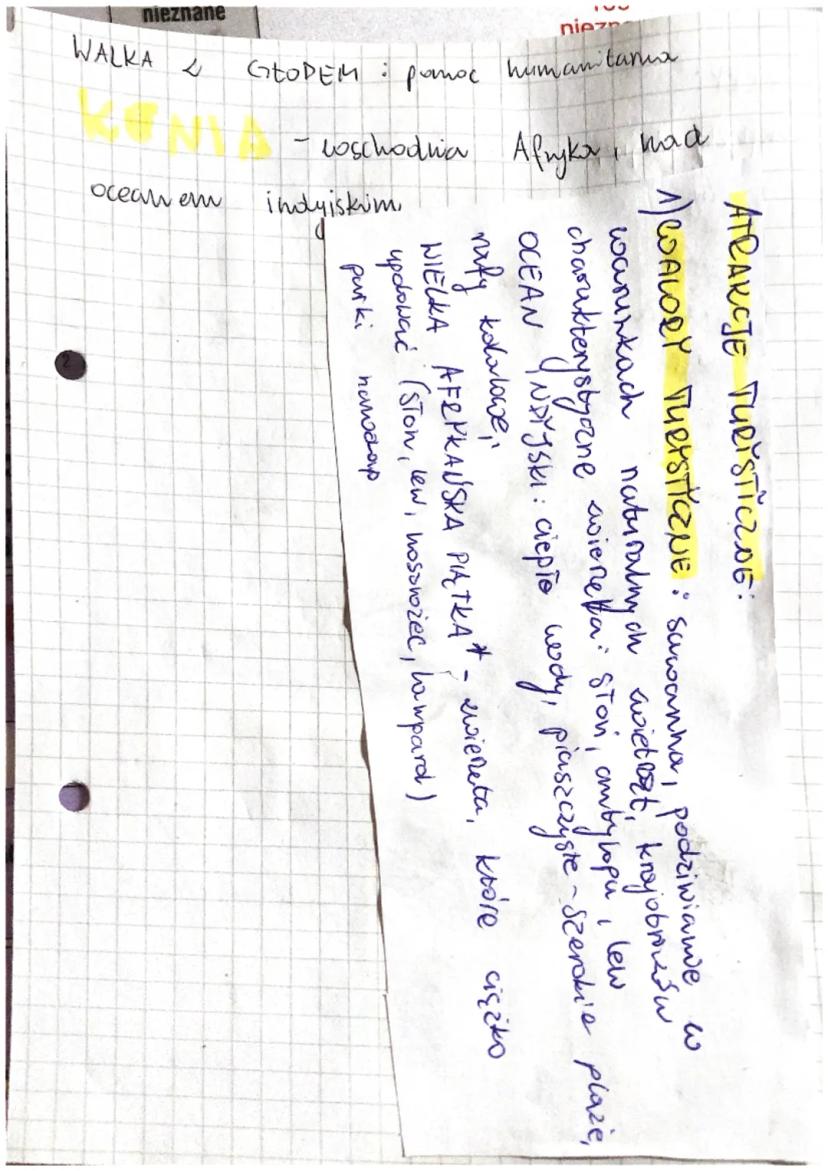 nieznane
WALKA Z GŁODEM : pomoc humanitarna
KENIA - wschodnia Afryka, nad
oceanem indyjskim
ATRAKCJE TURYSTYCZNE:
1) WALORY TURYSTYCZNE: sawanna, podziwianie w
warunkach naturalnych zwierząt, krajobrazów
charakterystyczne zwierzęta: słoń, antylopa, lew
OCEAN INDYJSKI: ciepłe wody, piaszczyste - szerokie plaże,
rafy koralowe,
WIELKA AFRYKAŃSKA PIĄTKA* - zwierzęta, które ciężko
upolować (słoń, lew, nosorożec, lampard)
parki narodowe